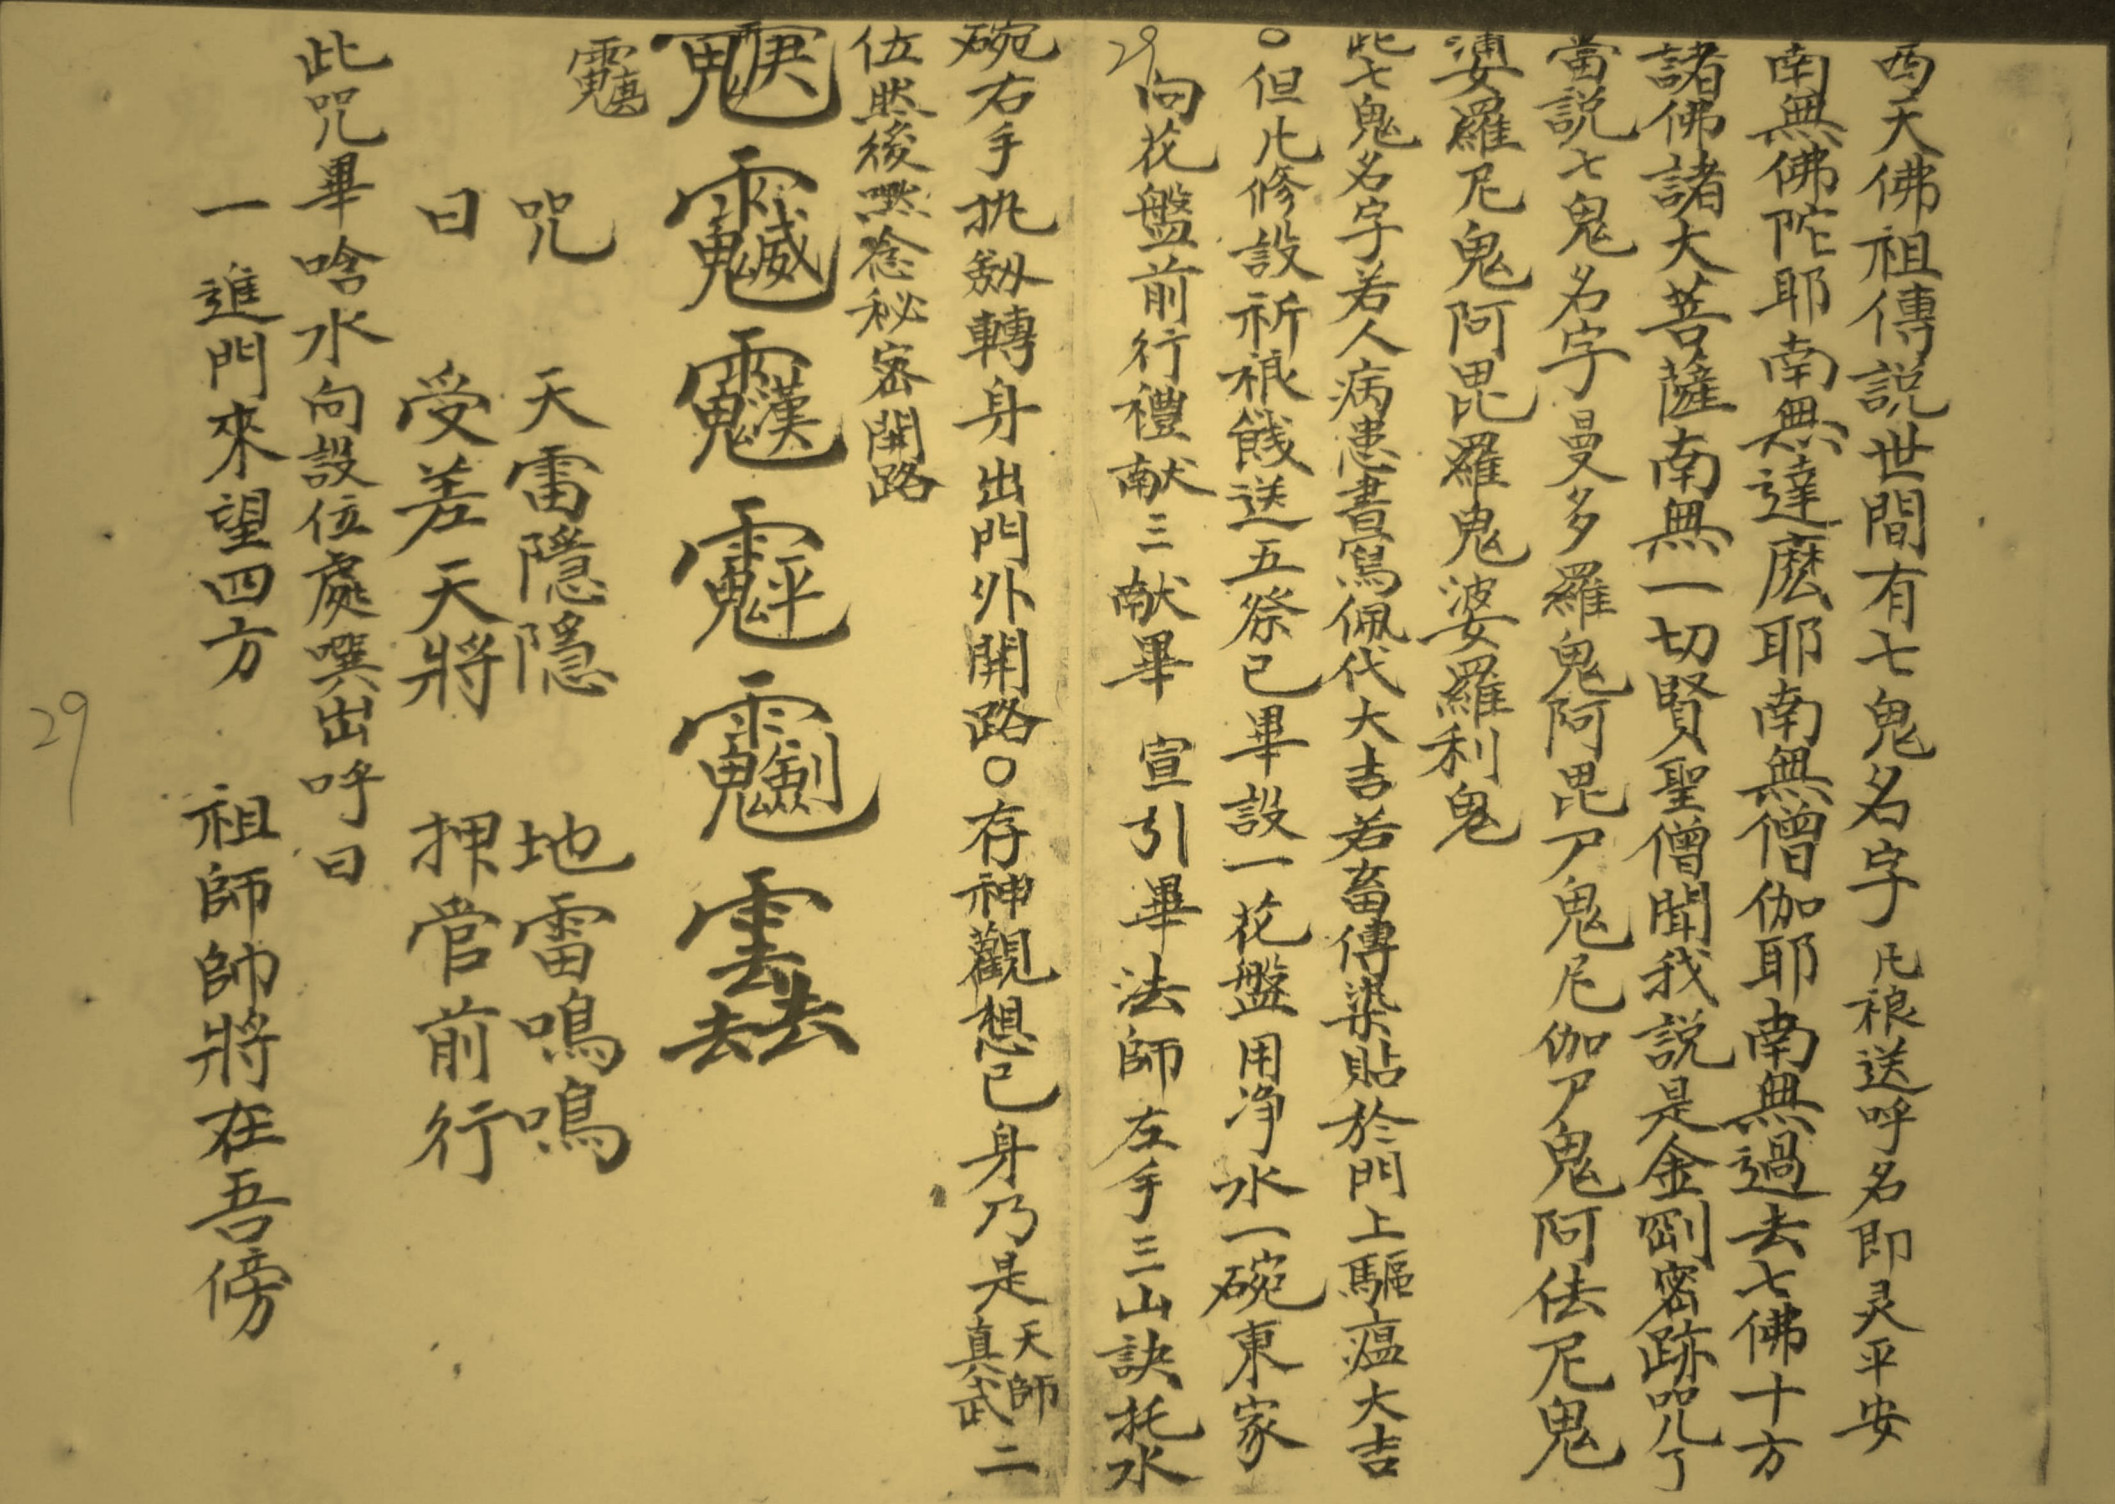 西天佛祖傳説世間有七鬼名字凡禓送呼名即灵平安
南無佛陀耶南無達麽耶南無僧伽耶南無過去七佛十方
諸佛諸大菩薩南無一切賢聖僧聞我説是金剛密跡咒了
當説七鬼名字曼多羅鬼阿毘尸鬼尼伽尸鬼阿佉尼鬼
婆羅尼鬼阿毘羅鬼婆羅利鬼
此七鬼名字若人病患書寫佩代大吉若畜傳染貼於門上驅瘟大吉
○但凡修設祈禓餞送五祭已畢設一花盤用净水一碗東家
29
向花盤前行禮献三献畢 宣引畢法師左手三山訣托水
碗右手执劔轉身出門外開路○存神觀想已身乃是天師真武二
位然後黙念秘密開路
咒 天雷隱隱 地雷鳴鳴
曰 受差天將 押官前行
此咒畢啥水向設位處噀出呼曰
一進門來望四方 祖師帥將在吾傍
29